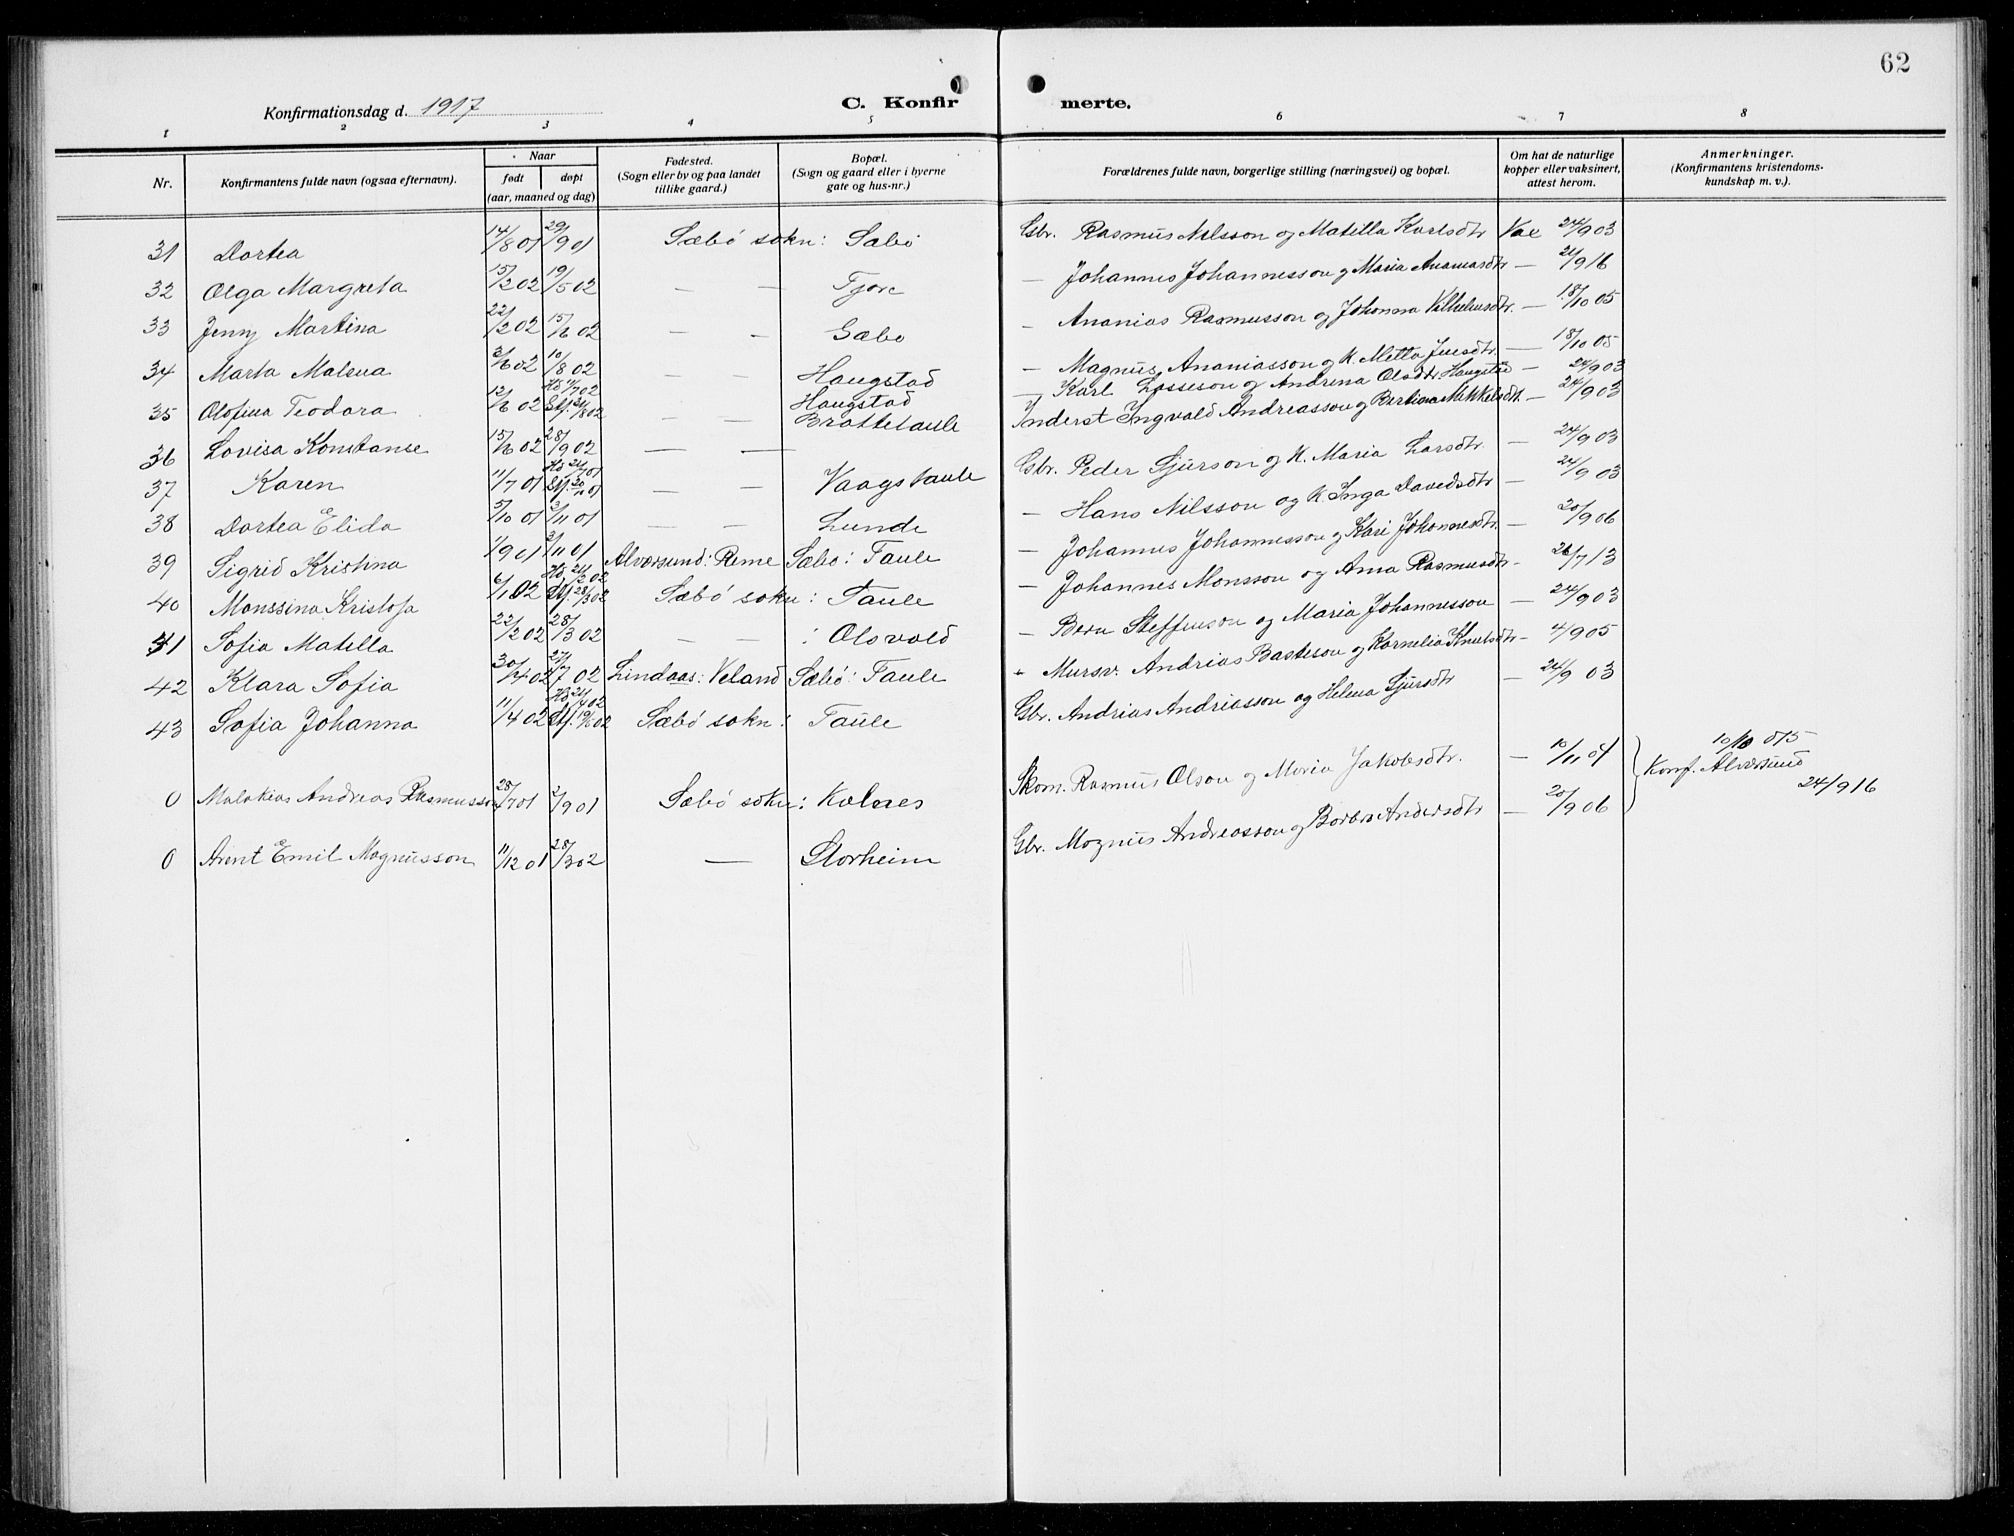 62
Konfirmationsdag d. 1917
C. Konfir merte.
1 2 3 4 5 6 7 8
Nr.
Konfirmantens fulde navn (ogsaa efternavn).
Naar
født døpt
(aar, maaned og dag)
Fødested.
(Sogn eller by og paa landet
tillike gaard.)
Bopæl.
(Sogn og gaard eller i byerne
gate og hus-nr.)
Forældrenes fulde navn, borgerlige stilling (næringsvei) og bopæl.
Om hat de naturlige
kopper eller vaksinert,
attest herom.
Anmerkninger.
(Konfirmantens kristendoms-
kundskap m. v.).
31 Dortea 14/8 01 29/9 01 Sæbö sokn: Sæbö Gbr. Rasmus Nilsson og Matella Karlsdtr Vac 24/9 03
32 Olga Margreta 15/2 02 19/5 02 — — Tjore — Johannes Johannesson og Maria Ananiasdtr — 21/9 16
33 Jenny Martina 22/2 02 15/6 02 — — Sæbo — Ananias Rasmusson og Johanna Vilhelmsdtr. — 18/10 05
34 Marta Malena 3/6 02 10/8 02 — — Haugstad — Magnus Ananiasson og K. Metta Jensdtr. — 18/10 05
— Karl Lasseson og Andrina Olsdtr. Haugstad — 24/9 03
35 Olofina Teodora 12/6 02 Hd 11/7 02 Stf. 24/8 02 — — Haugstad Brattetaule Inderst Ingvald Andreasson og Bertina Mikkelsdtr. — 24/9 03
36 Lovisa Konstanse 15/6 02 28/9 02 — — Gbr. Peder Sjurson og K. Maria Larsdtr — 24/9 03
37 Karen 11/7 01 Hd 21/7 01 Stf. 20/10 01 — — Vaagstaule — Hans Nilsson og K. Inga Davedsdtr — 24/9 03
38 Dortea Elida 5/10 01 3/11 01 — — Lunde — Johannes Johannesson og Kari Johannesdtr. — 20/9 06
39 Sigrid Kristina 1/9 01 3/11 01 Alværsund: Reme Sæbo: Taule — Johannes Monsson og Anna Rasmusdtr — 26/7 13
40 Monssina Kristofa 6/1 02 Hd 21/2 02 Stf. 28/3 02 Sæbö sokn: Taule — Bern Steffenson og Maria Johannesson — 24/9 03
41 Sofia Matella 22/2 02 28/3 02 — — : Olsvold — Mursv. Andrias Basteson og Kornelia Knutsdtr — 4/9 05
42 Klara Sofia 30/4 02 27/7 02 Lindaas: Veland Sæbö: Taule Gbr. Andrias Andriasson og Helena Sjursdtr — 24/9 03
43 Sofia Johanna 11/4 02 Hd 21/4 02 Stf. 19/5 02 Sæbö sokn: Taule
0 Malakias Andreas Rasmusson 28/7 01 2/9 01 Sæbö sokn: Kolnes Skom. Rasmus Olson og Maria Jakobsdtr. — 10/11 01
Konf. Alværsund
24/9 16
0 Arent Emil Magnusson 11/12 01 28/3 02 — Storheim Gbr. Magnus Andreasson og Borbra Andersdtr — 20/9 06